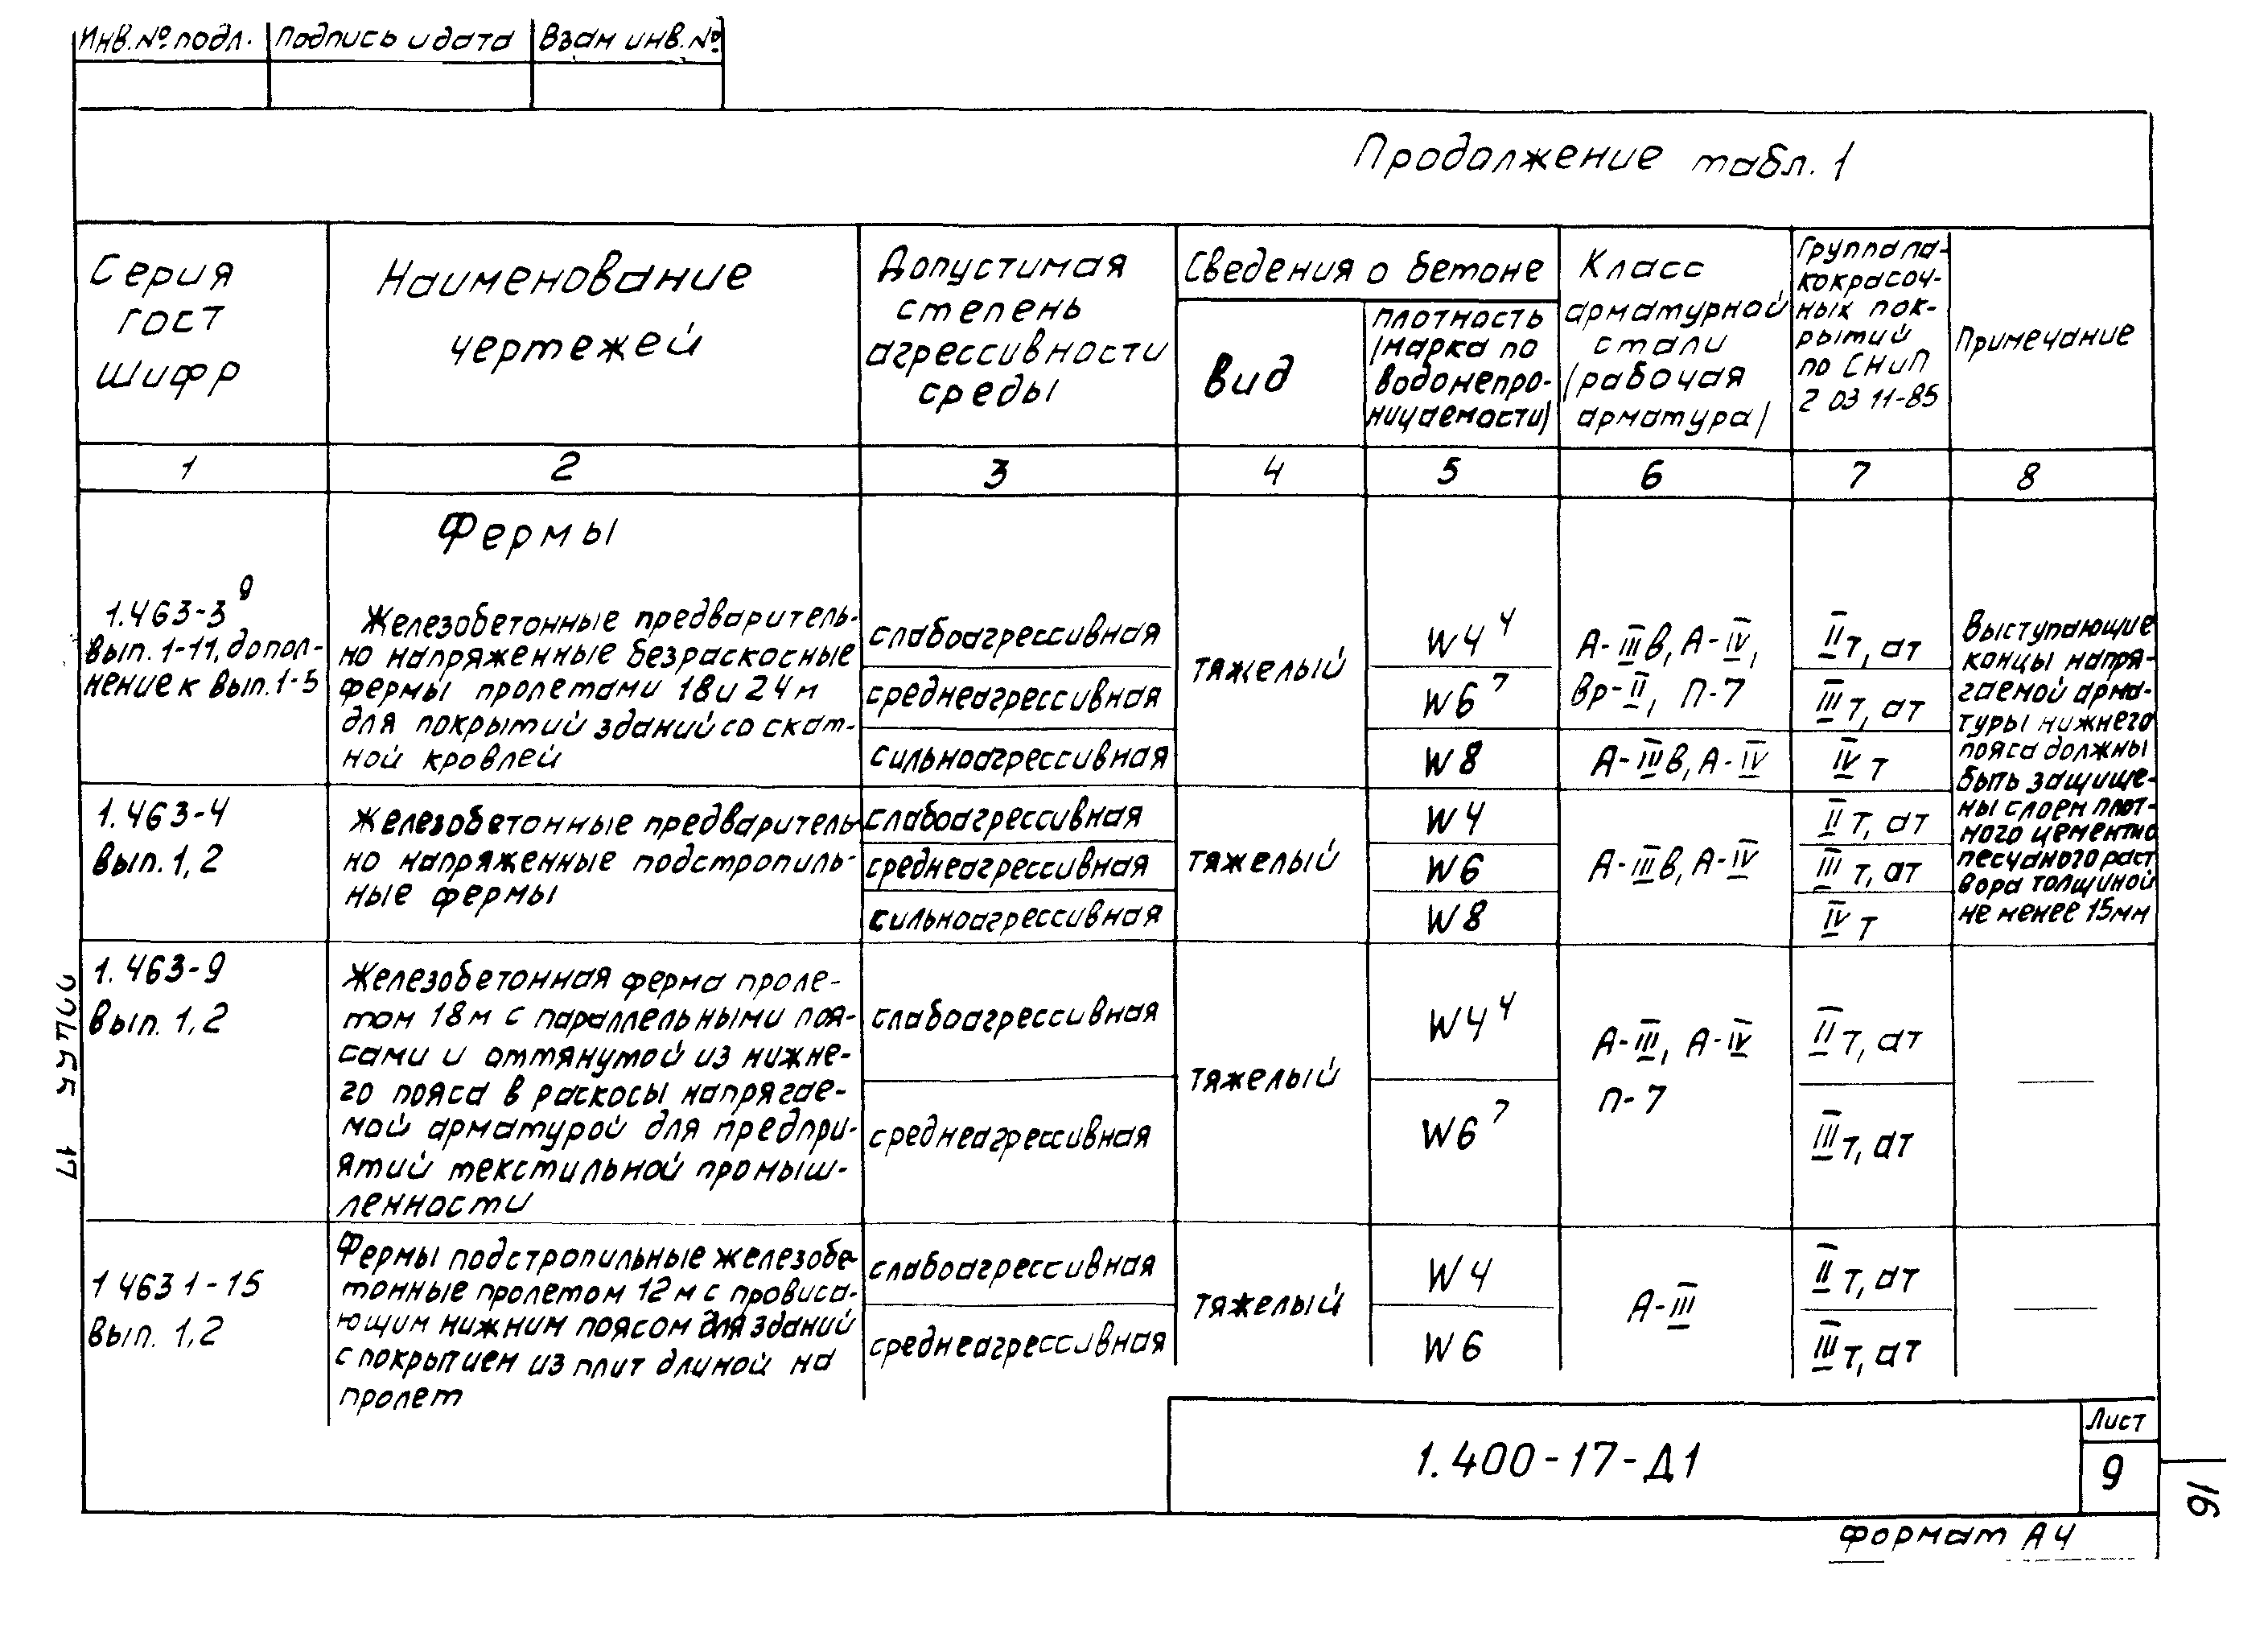 Инв.№ подл. Подпись и дата Взам инв.№
Продолжение табл. 1
Серия
ГОСТ
Шифр
Наименование
чертежей
Допустимая
степень
агрессивности
среды
Сведения о бетоне
Вид
плотность
/марка по
водонепро-
ницаемости/
Класс
арматурной
стали
/рабочая
арматура/
Группа ла-
кокрасоч-
ных пок-
рытий
по СНиП
2 03 11-85
Примечание
1 2 3 4 5 6 7 8
Фермы
1.463-3 9
Вып. 1-11, допол-
нение к вып. 1-5
Железобетонные предваритель-
но напряженные безраскосные
фермы пролетами 18 и 24 м
для покрытий зданий со скат-
ной кровлей
слабоагрессивная
среднеагрессивная
сильноагрессивная
тяжелый
W4 4
W6 7
W8
А-IIIв, А-IV,
Вр-II, П-7
А-IIIв, А-IV
II т, ат
III т, ат
IV т
Выступающие
концы напря-
гаемой арма-
туры нижнего
пояса должны
быть защище-
ны слоем плот-
ного цементно
песчаного раст
вора толщиной
не менее 15мм
1.463-4
Вып. 1,2
Железобетонные предваритель
но напряженные подстропиль-
ные фермы
слабоагрессивная
среднеагрессивная
сильноагрессивная
тяжелый
W4
W6
W8
А-IIIв, А-IV
II т, ат
III т, ат
IV т
1.463-9
Вып. 1,2
Железобетонная ферма проле-
том 18м с параллельными поя-
сами и оттянутой из нижне-
го пояса в раскосы напрягае-
мой арматурой для предпри-
ятий текстильной промыш-
ленности
слабоагрессивная
среднеагрессивная
тяжелый
W4 4
W6 7
А-III, А-IV
П-7
II т, ат
III т, ат
—
1 463 1-15
Вып. 1,2
Фермы подстропильные железобе-
тонные пролетом 12 м с провиса-
ющим нижним поясом для зданий
с покрытием из плит длиной на
пролет
слабоагрессивная
среднеагрессивная
тяжелый
W4
W6
А-III
II т, ат
III т, ат
—
17
1.400-17-Д1
Лист
9
16
Формат А4